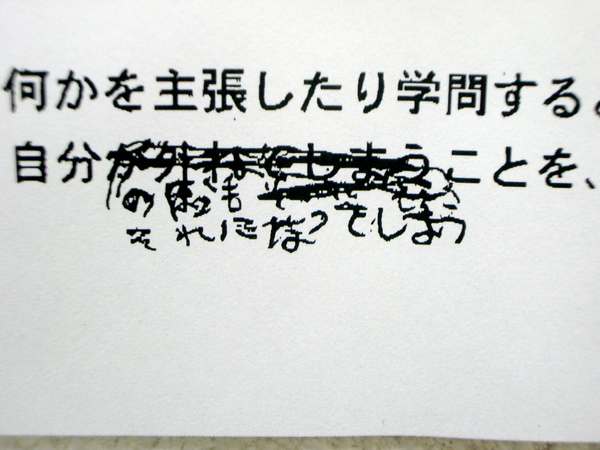 何かを主張したり学問する
自分が外れてしまうことを、
の
それになってしまう